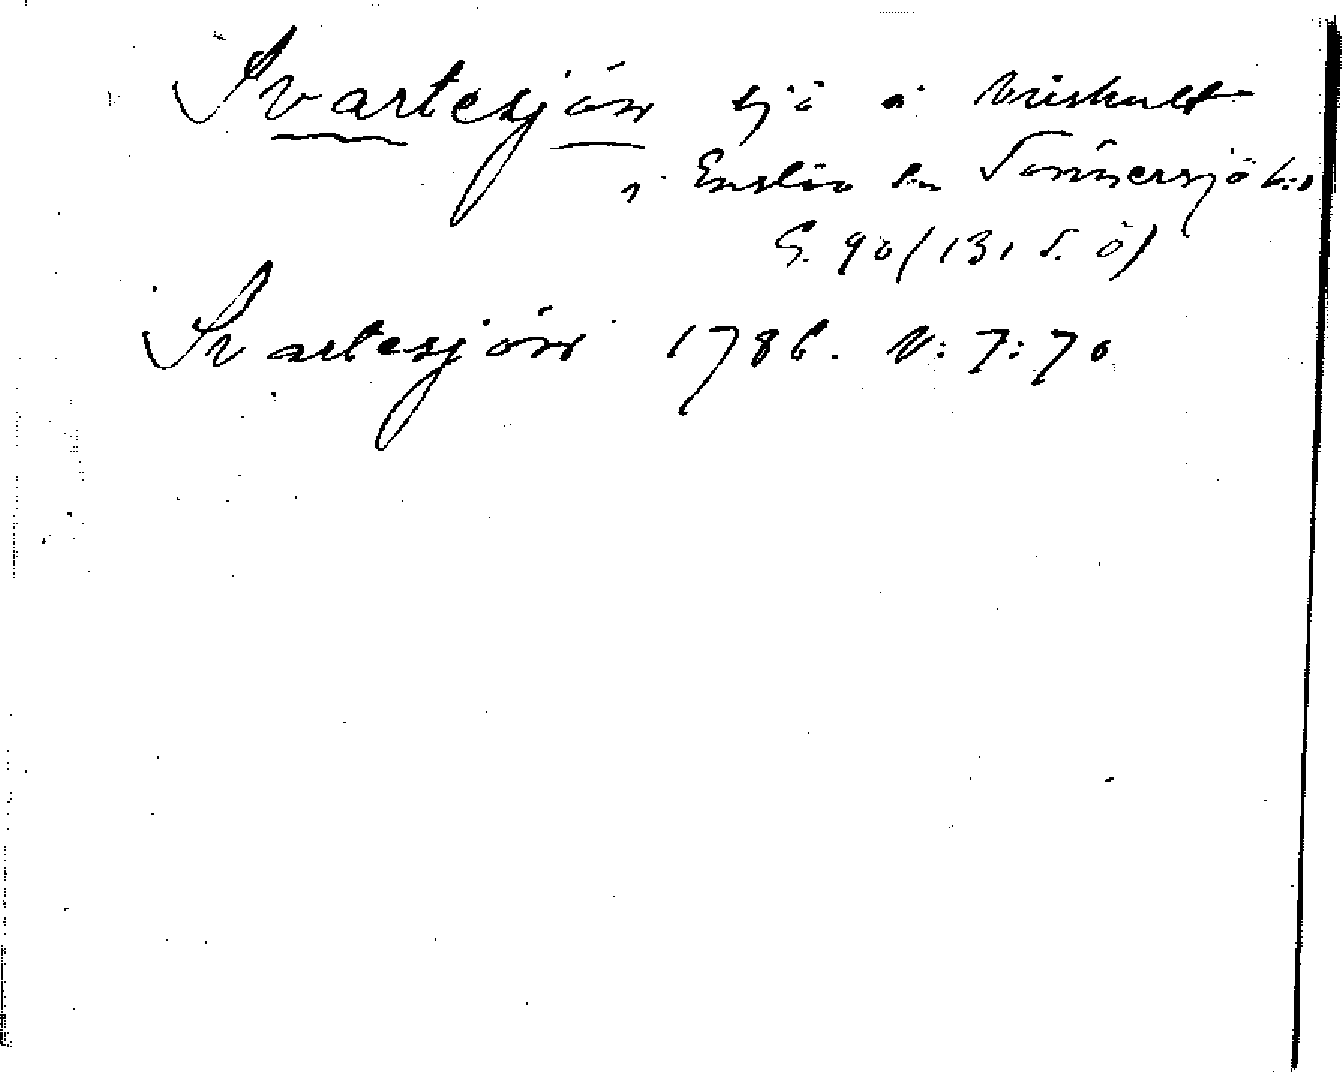 Svartesjön sjö i Vrishult
i Enslöv sn Tönnersjö hd
G. 90 (131 S. Ö)
Svartesjön 1786. V: 7: 70